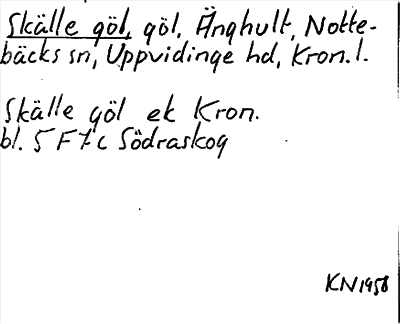 Skälle göl, göl, Änghult, Notte-
bäcks sn, Uppvidinge hd, Kron. l.
Skälle göl ek Kron.
bl. 5 F 7 c Södraskog
KN 1958